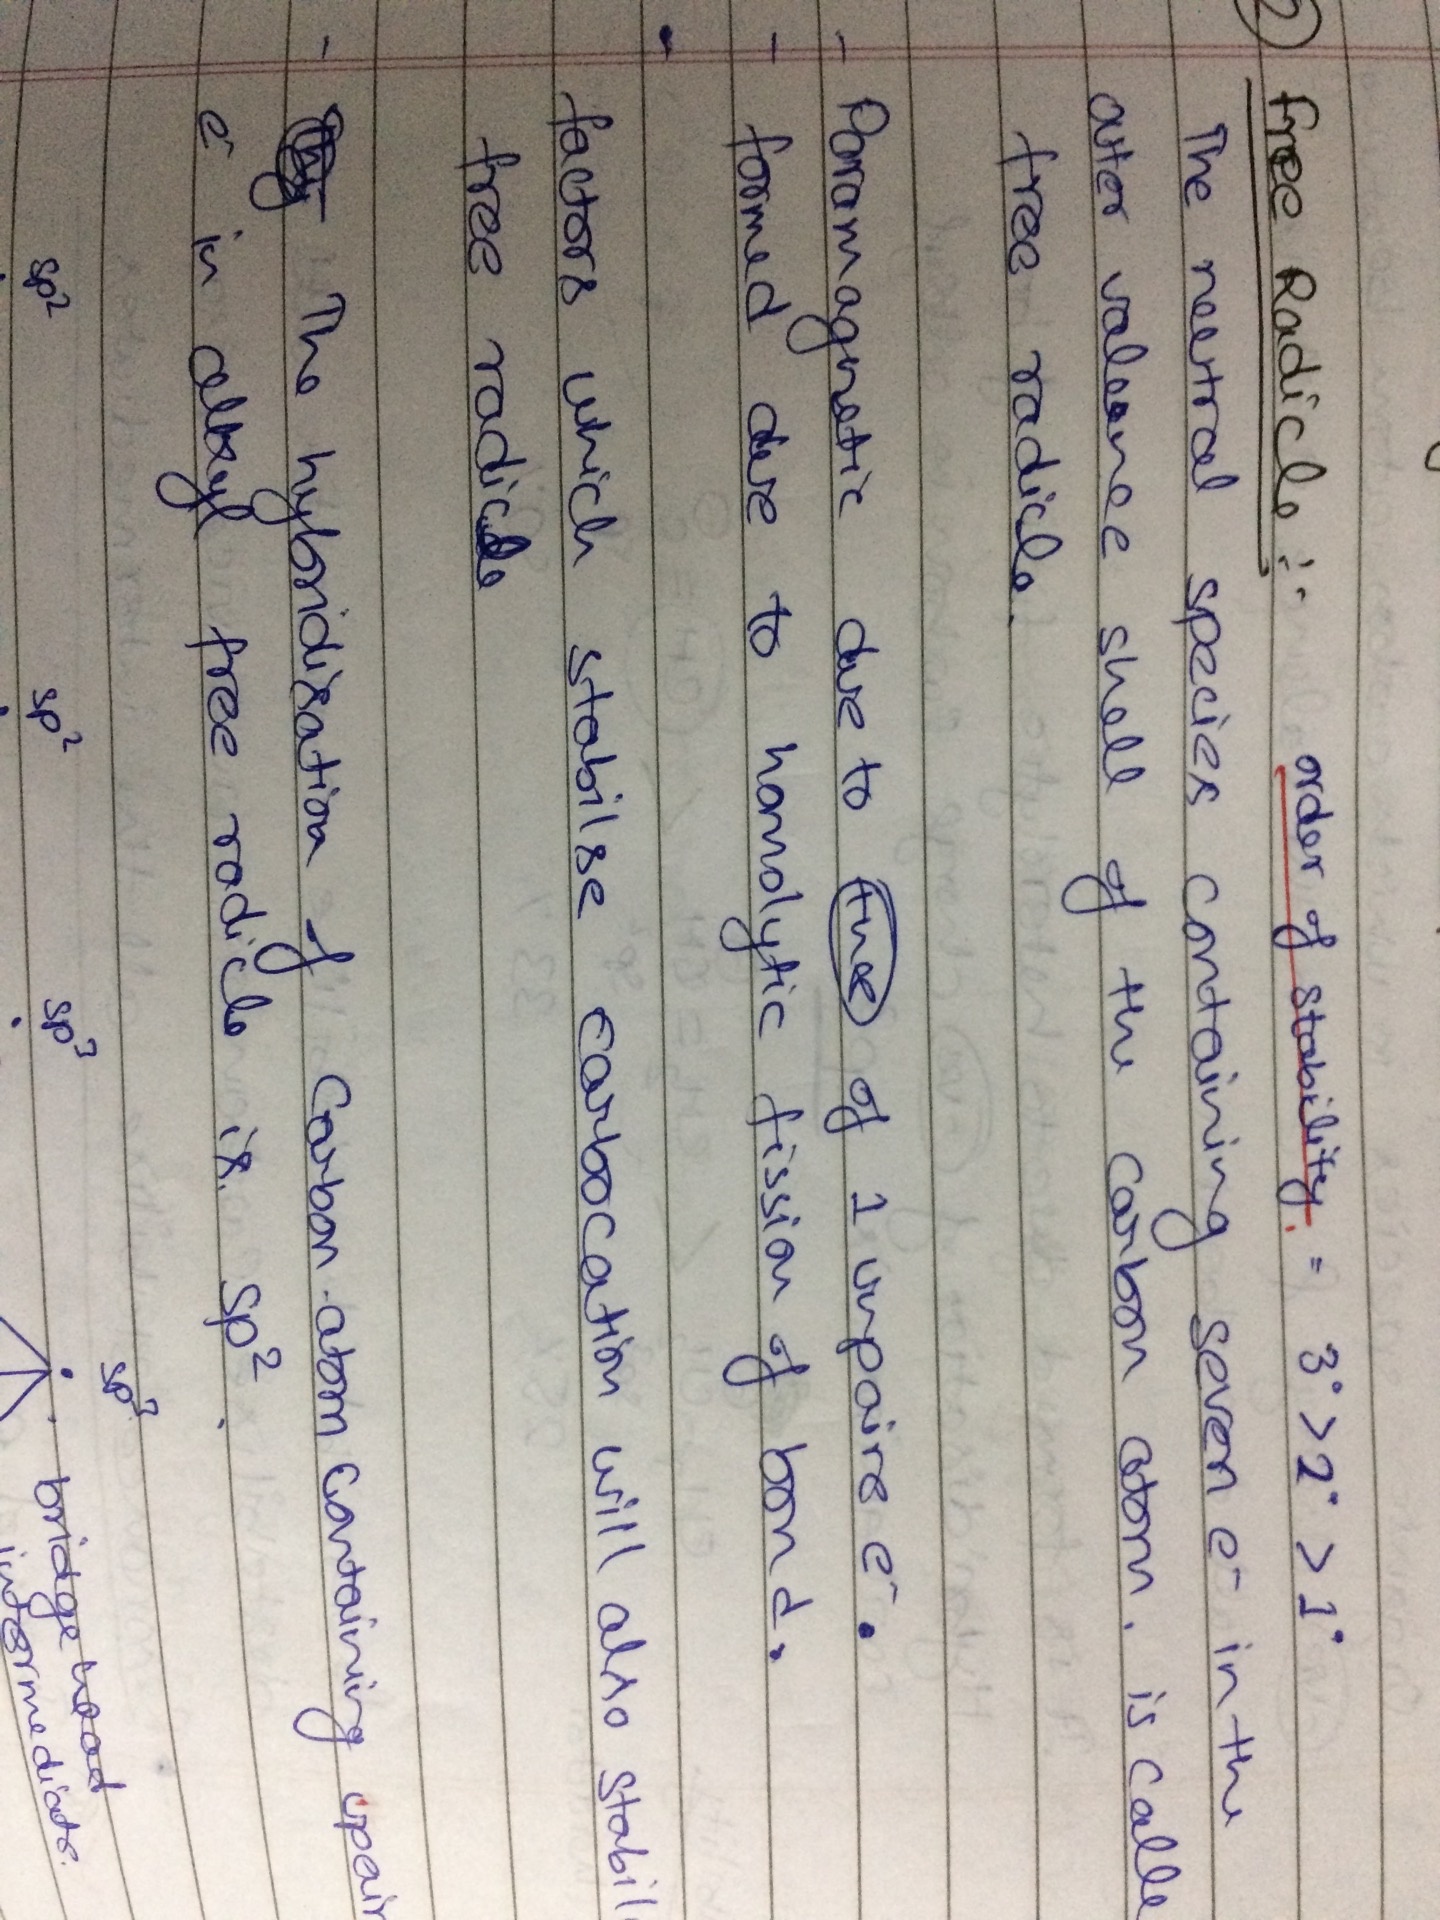 2 free Radicle :- order of stability = 3° > 2° > 1°
The neutral species containing seven e⁻ in the
outer valence shell of the carbon atom, is calle
free radicle.
- Paramagnetic due to the of 1 unpaire e⁻.
- formed due to homolytic fission of bond.
• factors which stabilise carbocation will also stabil
free radicle
- The hybridisation of Carbon atom containing upair
e⁻ in alkyl free radicle is sp².
sp² sp² sp³ sp³
bridge head
intermediate.